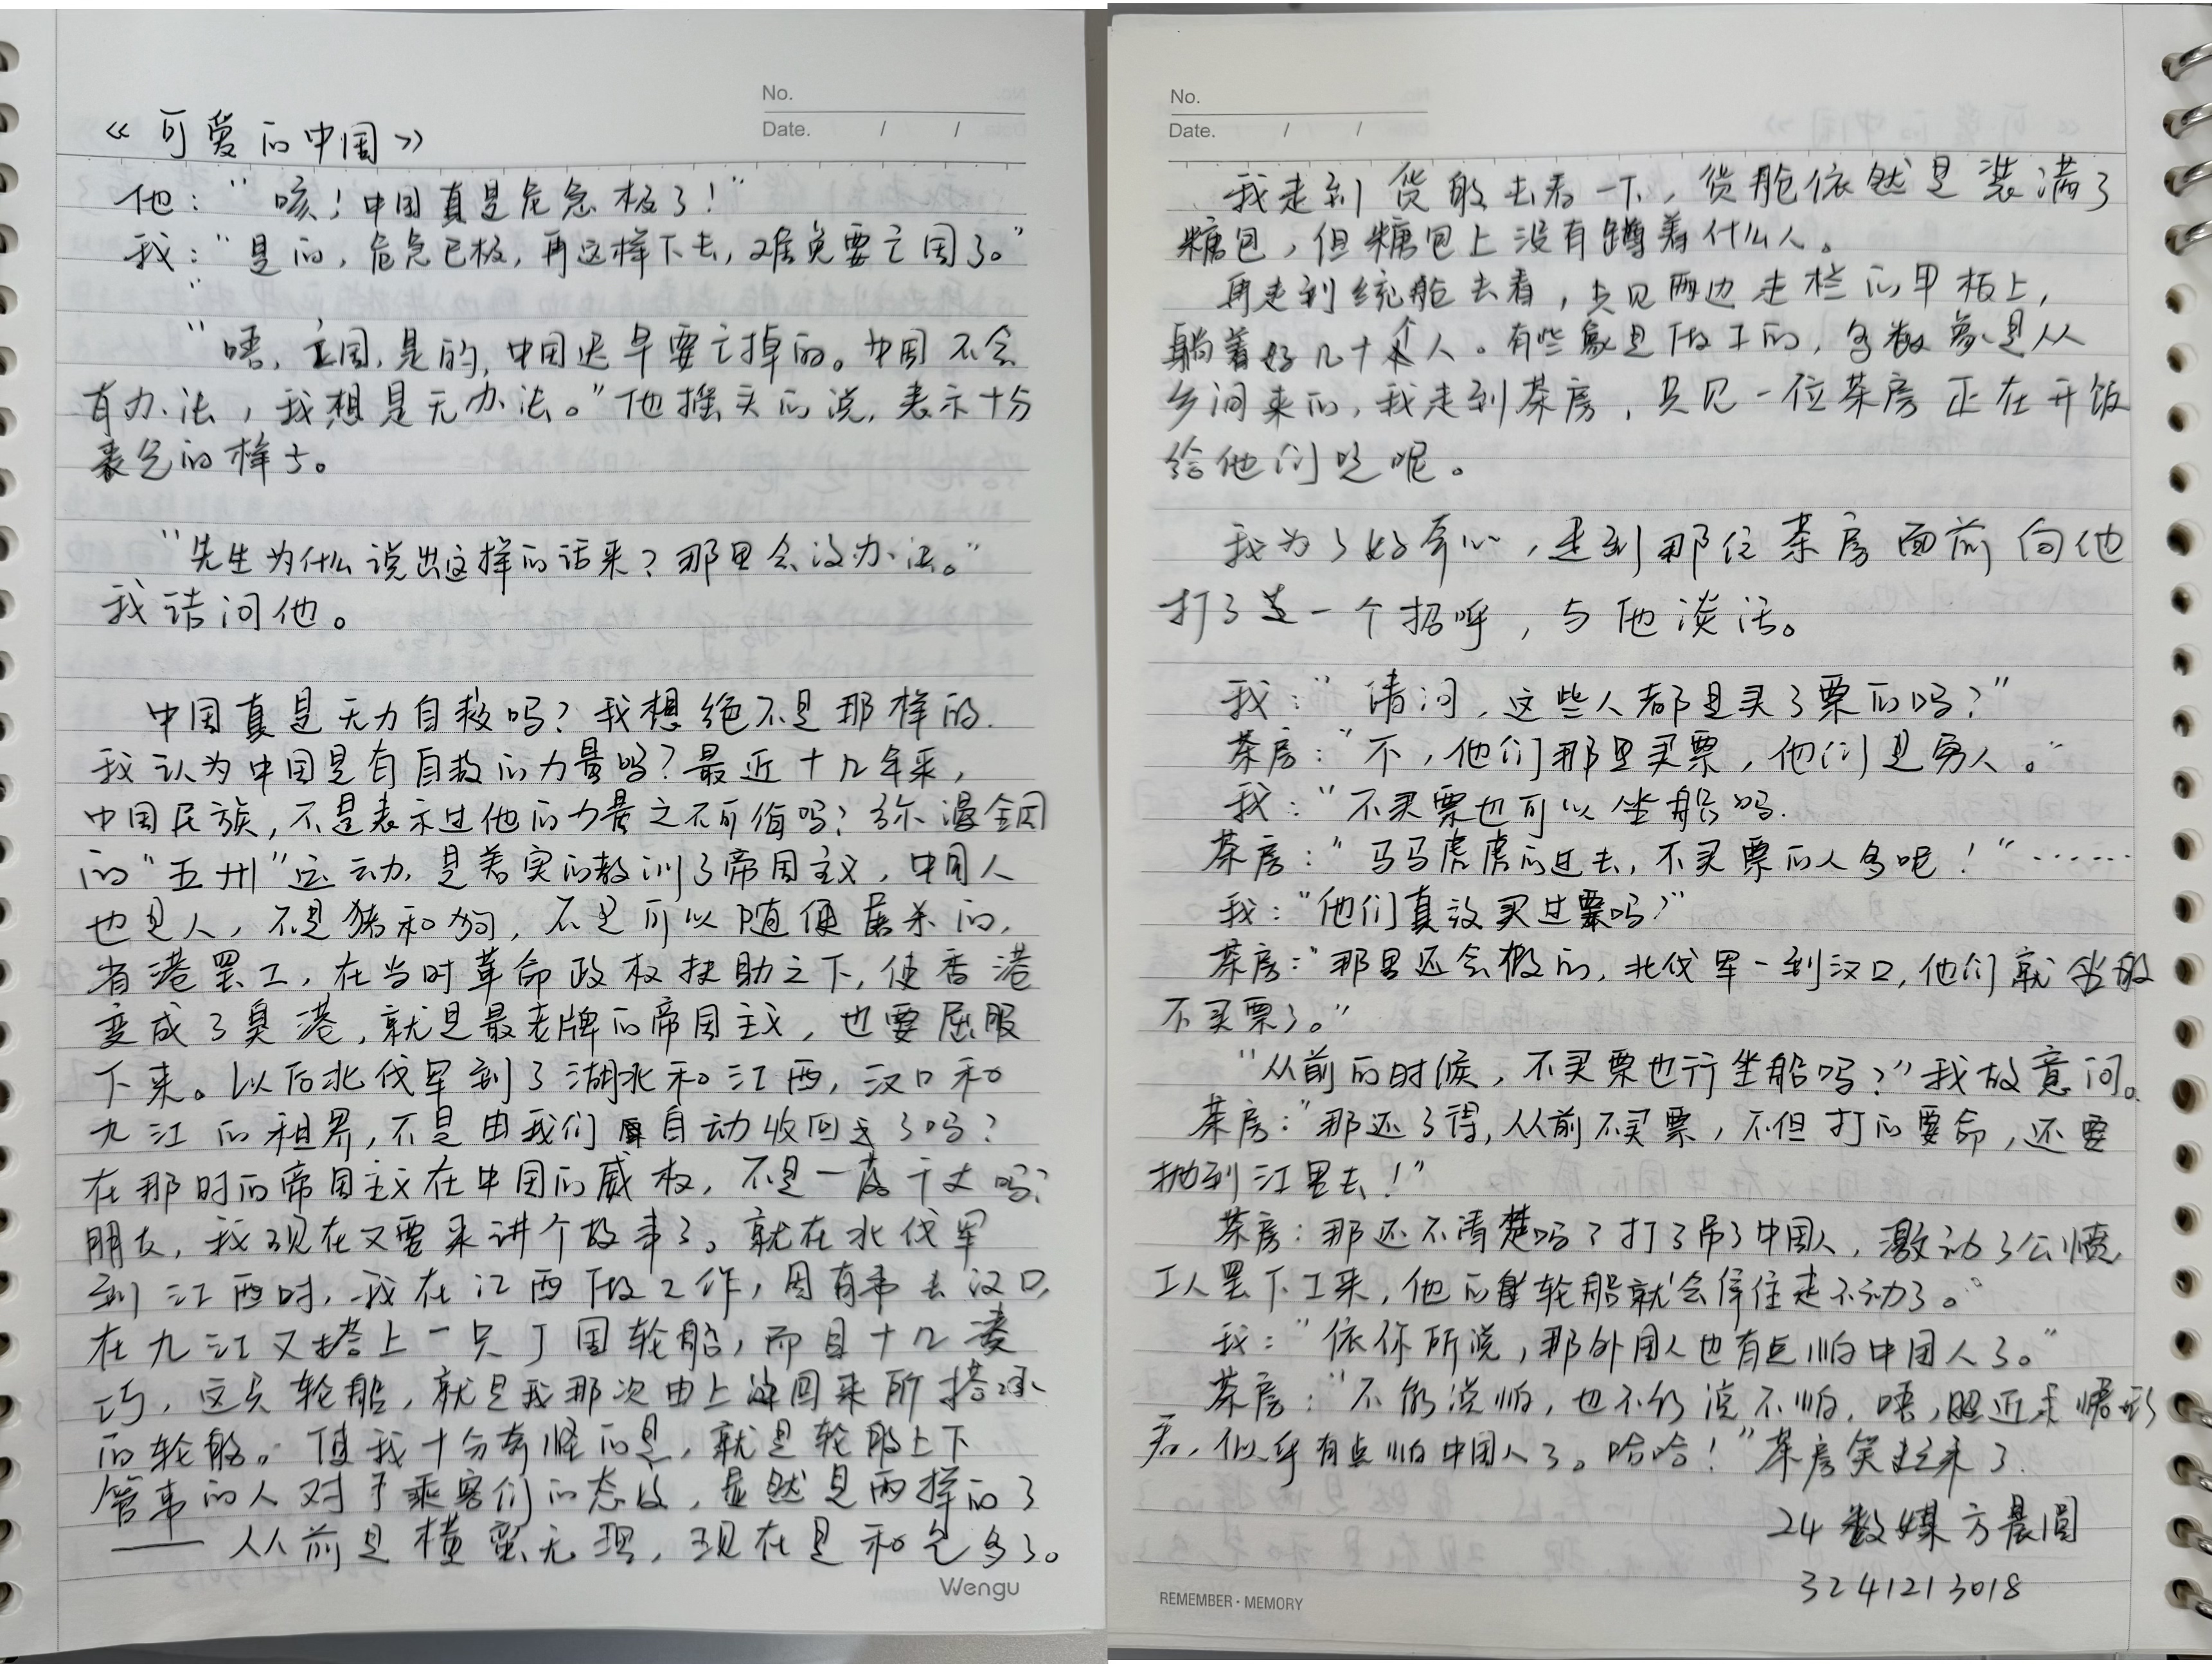 No.
Date. / /
《可爱的中国》
他：“咳！中国真是危急极了！”
我：“是的，危急已极，再这样下去，难免要亡国了。”
“唔，亡国，是的，中国迟早要亡掉的。中国不会
有办法，我想是无办法。”他摇头的说，表示十分
丧气的样子。
“先生为什么说出这样的话来？那里会没办法。”
我诘问他。
中国真是无力自救吗？我想绝不是那样的.
我认为中国是有自救的力量吗？最近十几年来，
中国民族，不是表示过他的力量之不可侮吗？弥漫全国
的“五卅”运动，是着实的教训了帝国主义，中国人
也是人，不是猪和狗，不是可以随便屠杀的，
省港罢工，在当时革命政权扶助之下，使香港
变成了臭港，就是最老牌的帝国主义，也要屈服
下来。以后北伐军到了湖北和江西，汉口和
九江的租界，不是由我们自动收回了吗？
在那时的帝国主义在中国的威权，不是一落千丈吗？
朋友，我现在又要来讲个故事了。就在北伐军
到江西时，我在江西做工作，因有事去汉口，
在九江又搭上一只J国轮船，而且十几凑
巧，这只轮船，就是我那次由上海回来所搭乘
的轮船。使我十分奇怪的是，就是轮船上下
管事的人对于乘客们的态度，显然是两样的了
——从前是横蛮无理，现在是和气多了。
Wengu
No.
Date. / /
我走到货船去看一下，货舱依然是装满了
糖包，但糖包上没有蹲着什么人。
再走到统舱去看，只见两边走栏的甲板上，
躺着好几十个人。有些象是做工的，多数象是从
乡间来的，我走到茶房，只见一位茶房正在开饭
给他们吃呢。
我为了好奇心，走到那位茶房面前向他
打了一个招呼，与他谈话。
我：“请问，这些人都是买了票的吗？”
茶房：“不，他们那里买票，他们是穷人。”
我：“不买票也可以坐船吗.
茶房：“马马虎虎的过去，不买票的人多呢！”……
我：“他们真没买过票吗？”
茶房：“那里还会假的，北伐军一到汉口，他们就坐船
不买票了。”
“从前的时候，不买票也行坐船吗？”我故意问。
茶房：“那还了得，从前不买票，不但打的要命，还要
抛到江里去！”
茶房：那还不清楚吗？打了吊了中国人，激动了公愤，
工人罢下工来，他的轮船就会停住走不动了。”
我：“依你所说，那外国人也有点怕中国人了。”
茶房：“不能说怕，也不能说不怕，唔，照近来情形
看，似乎有点怕中国人了。哈哈！”茶房笑起来了.
24 数媒 方晨圆
3241213018
REMEMBER·MEMORY